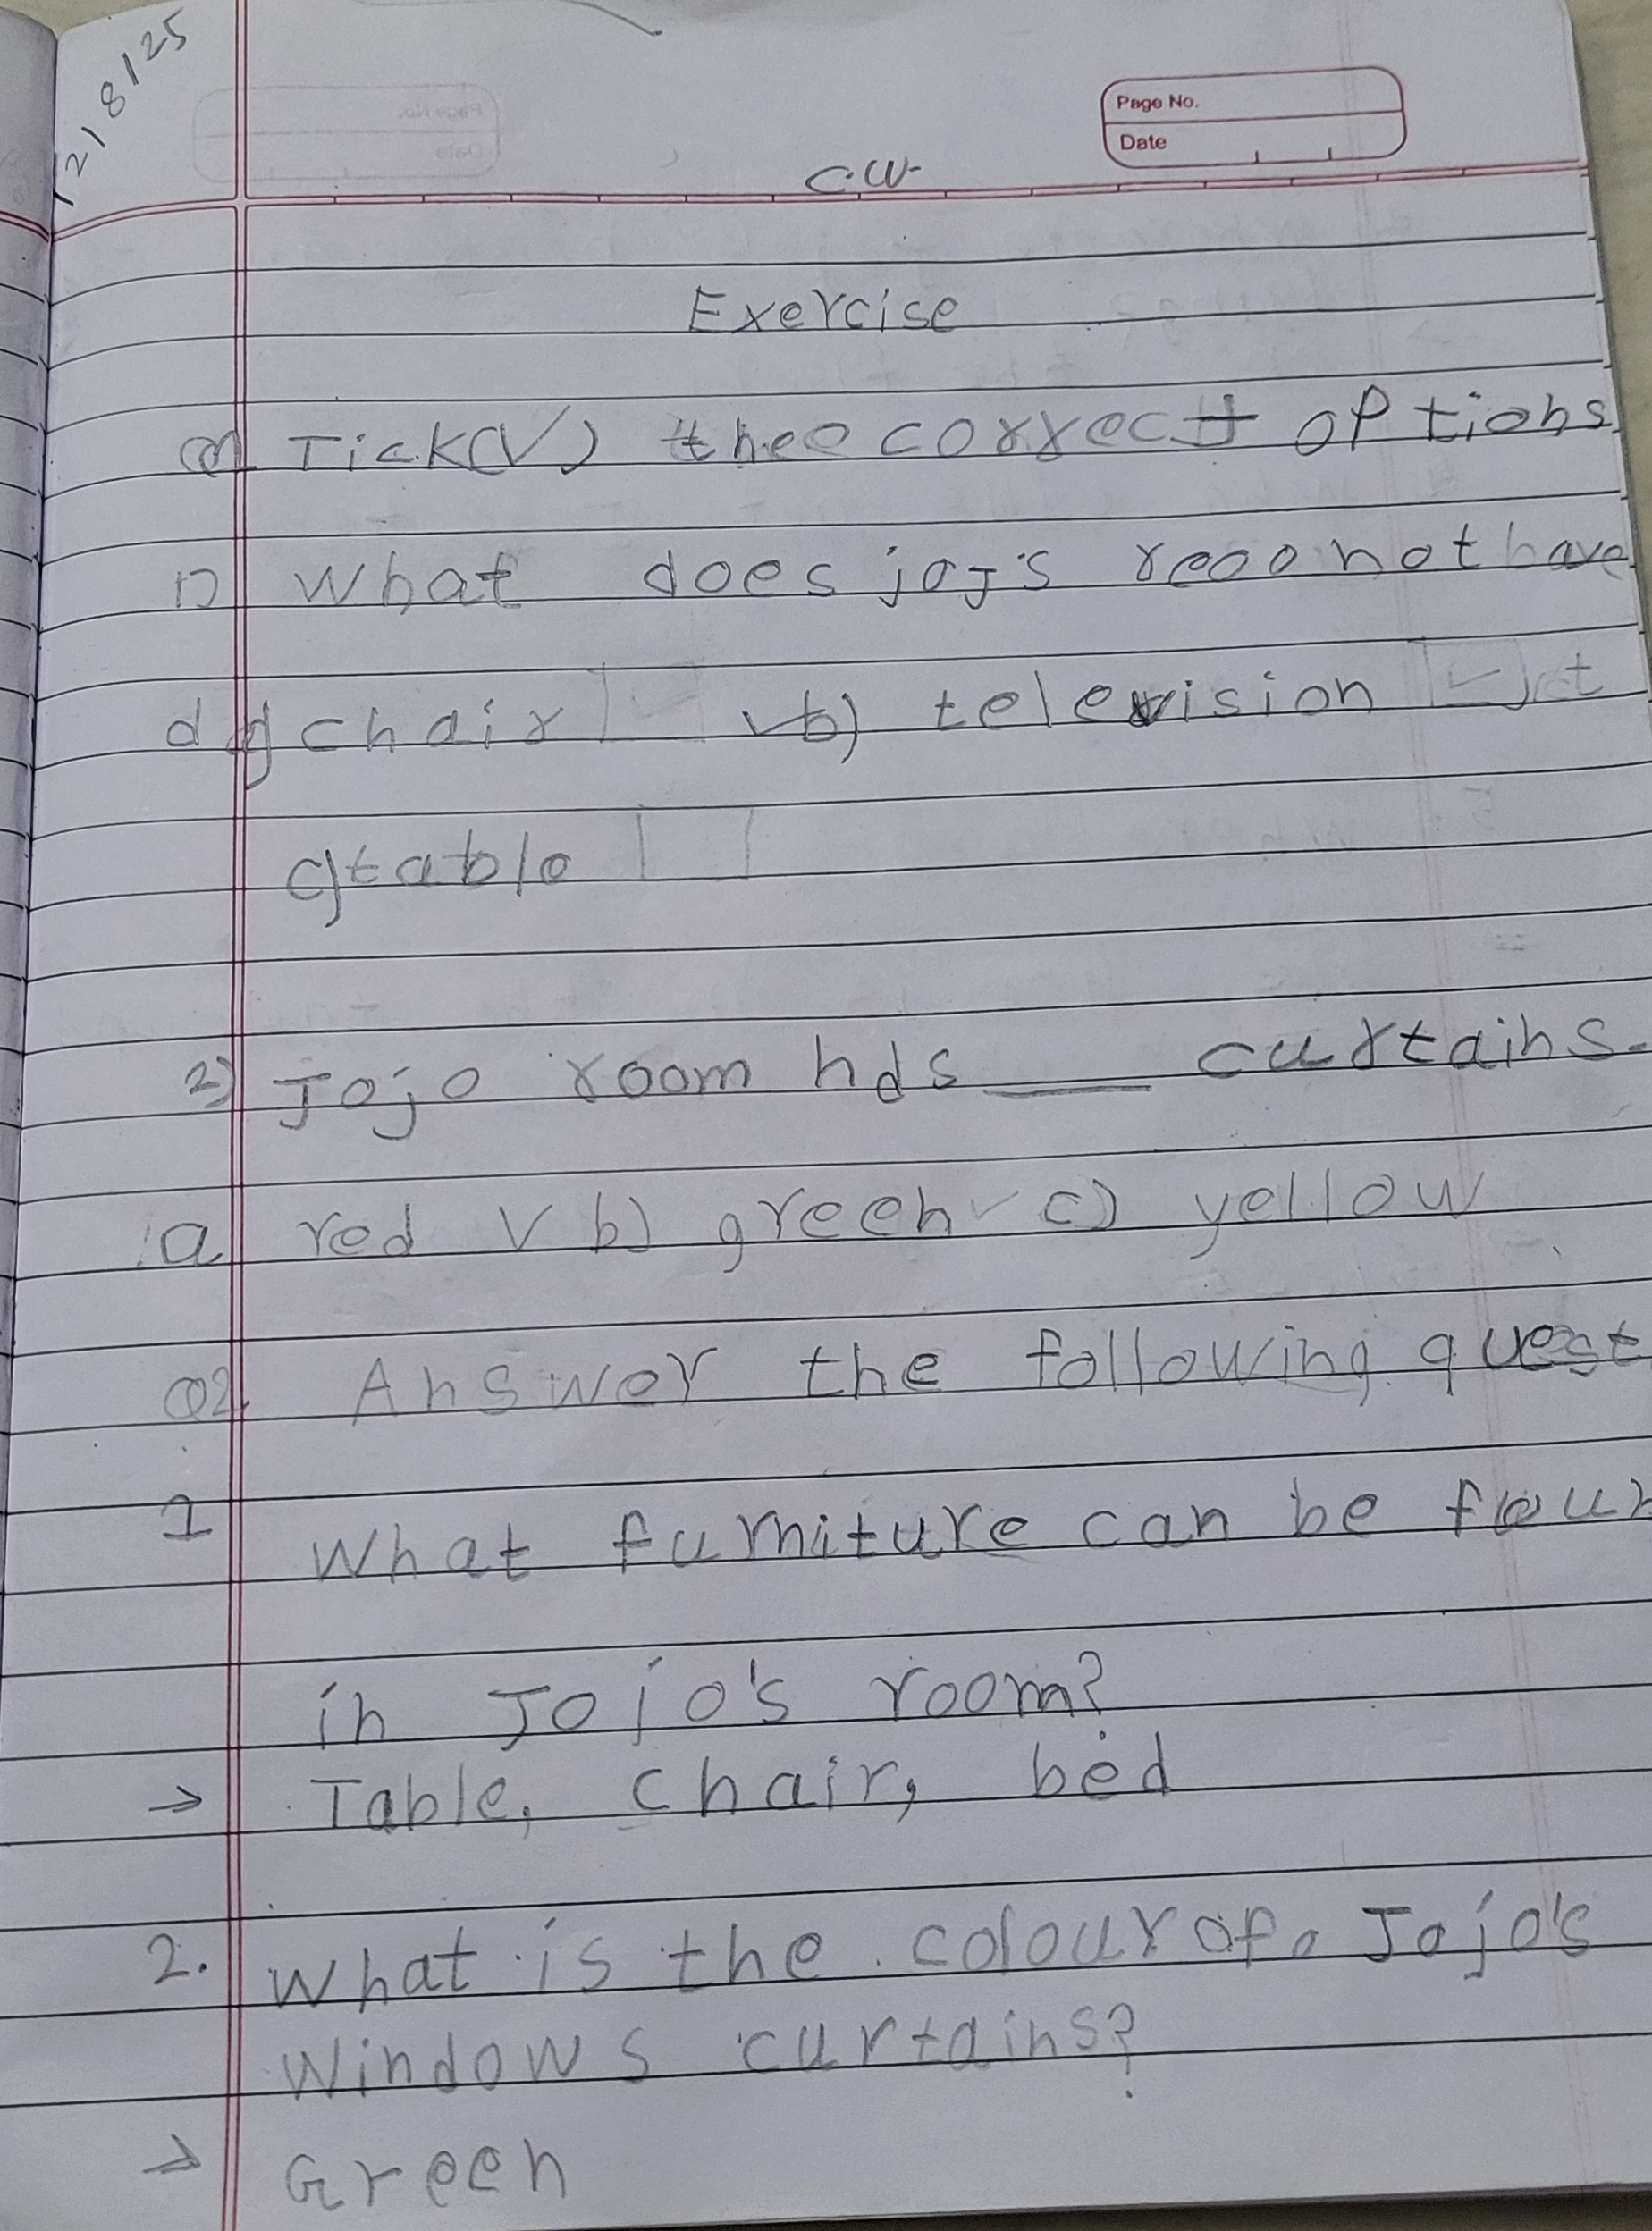 12/8/25
Page No.
Date
C.W.
Exercise
Tick(√) thee correct options
1) What does joj's reoo not have
chair √b) television
c) table
2) Jojo room hds ___ curtains.
a red √ b) green c) yellow
Q2 Answer the following quest
1 What furniture can be foun
in Jojo's room?
→ Table, chair, bed
2. What is the colour of Jojo's
Windows curtains?
→ Green